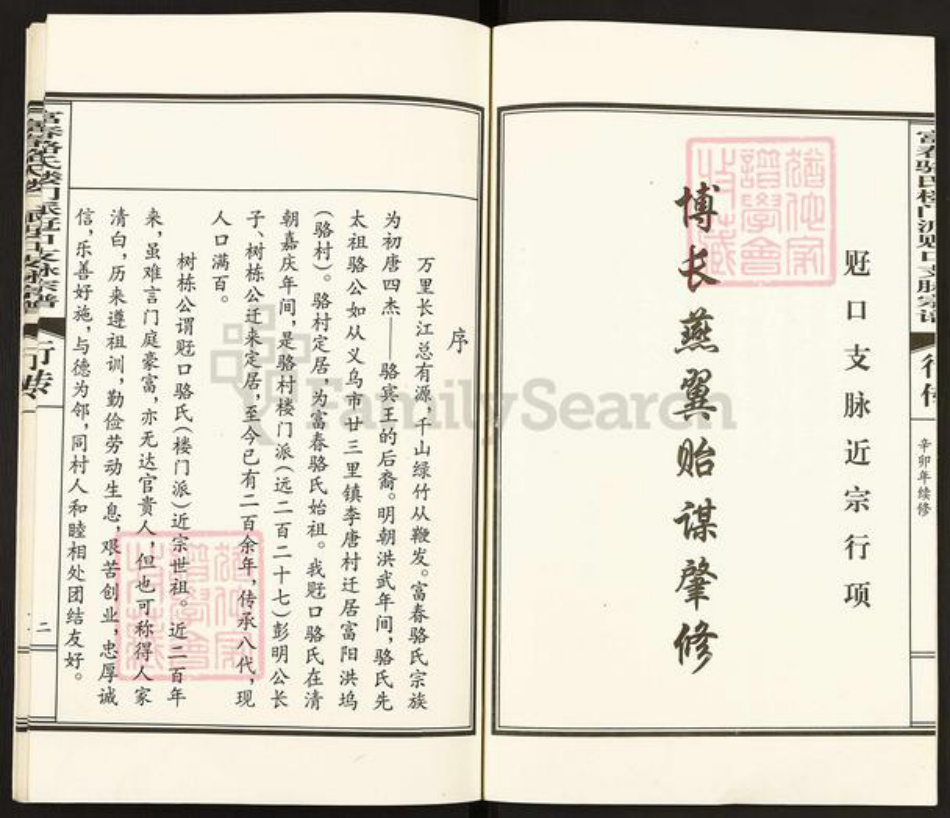 富春骆氏楼门派贩口支脉宗谱
行传
辛卯年续修
贩口支脉近宗行项
博长燕翼贻谋肇修
序
万里长江总有源,千山绿竹从鞭发。富春骆氏宗族
为初唐四杰——骆宾王的后裔。明朝洪武年间,骆氏先
太祖骆公如从义乌市廿三里镇李唐村迁居富阳洪坞
(骆村)。骆村定居,为富春骆氏始祖。我贩口骆氏在清
朝嘉庆年间,是骆村楼门派(远二百二十七)彭明公长
子、树栋公迁来定居,至今已有二百余年,传承八代,现
人口满百。
树栋公谓贩口骆氏(楼门派)近宗世祖。近二百年
来,虽难言门庭豪富,亦无达官贵人,但也可称得人家
清白,历来遵祖训,勤俭劳动生息,艰苦创业,忠厚诚
信,乐善好施,与德为邻,同村人和睦相处团结友好。
富春骆氏楼门派贩口支脉宗谱
行传
二
猶他家
譜學會
收藏
猶他家
譜學會
收藏
FamilySearch